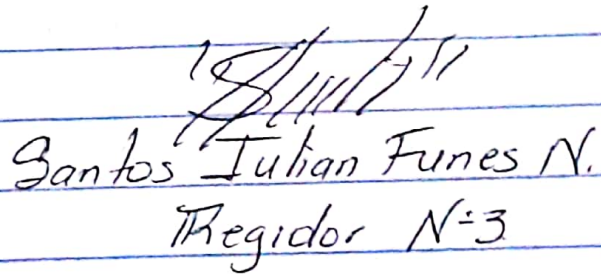 Santos Julian Funes N.
Regidor Nº3